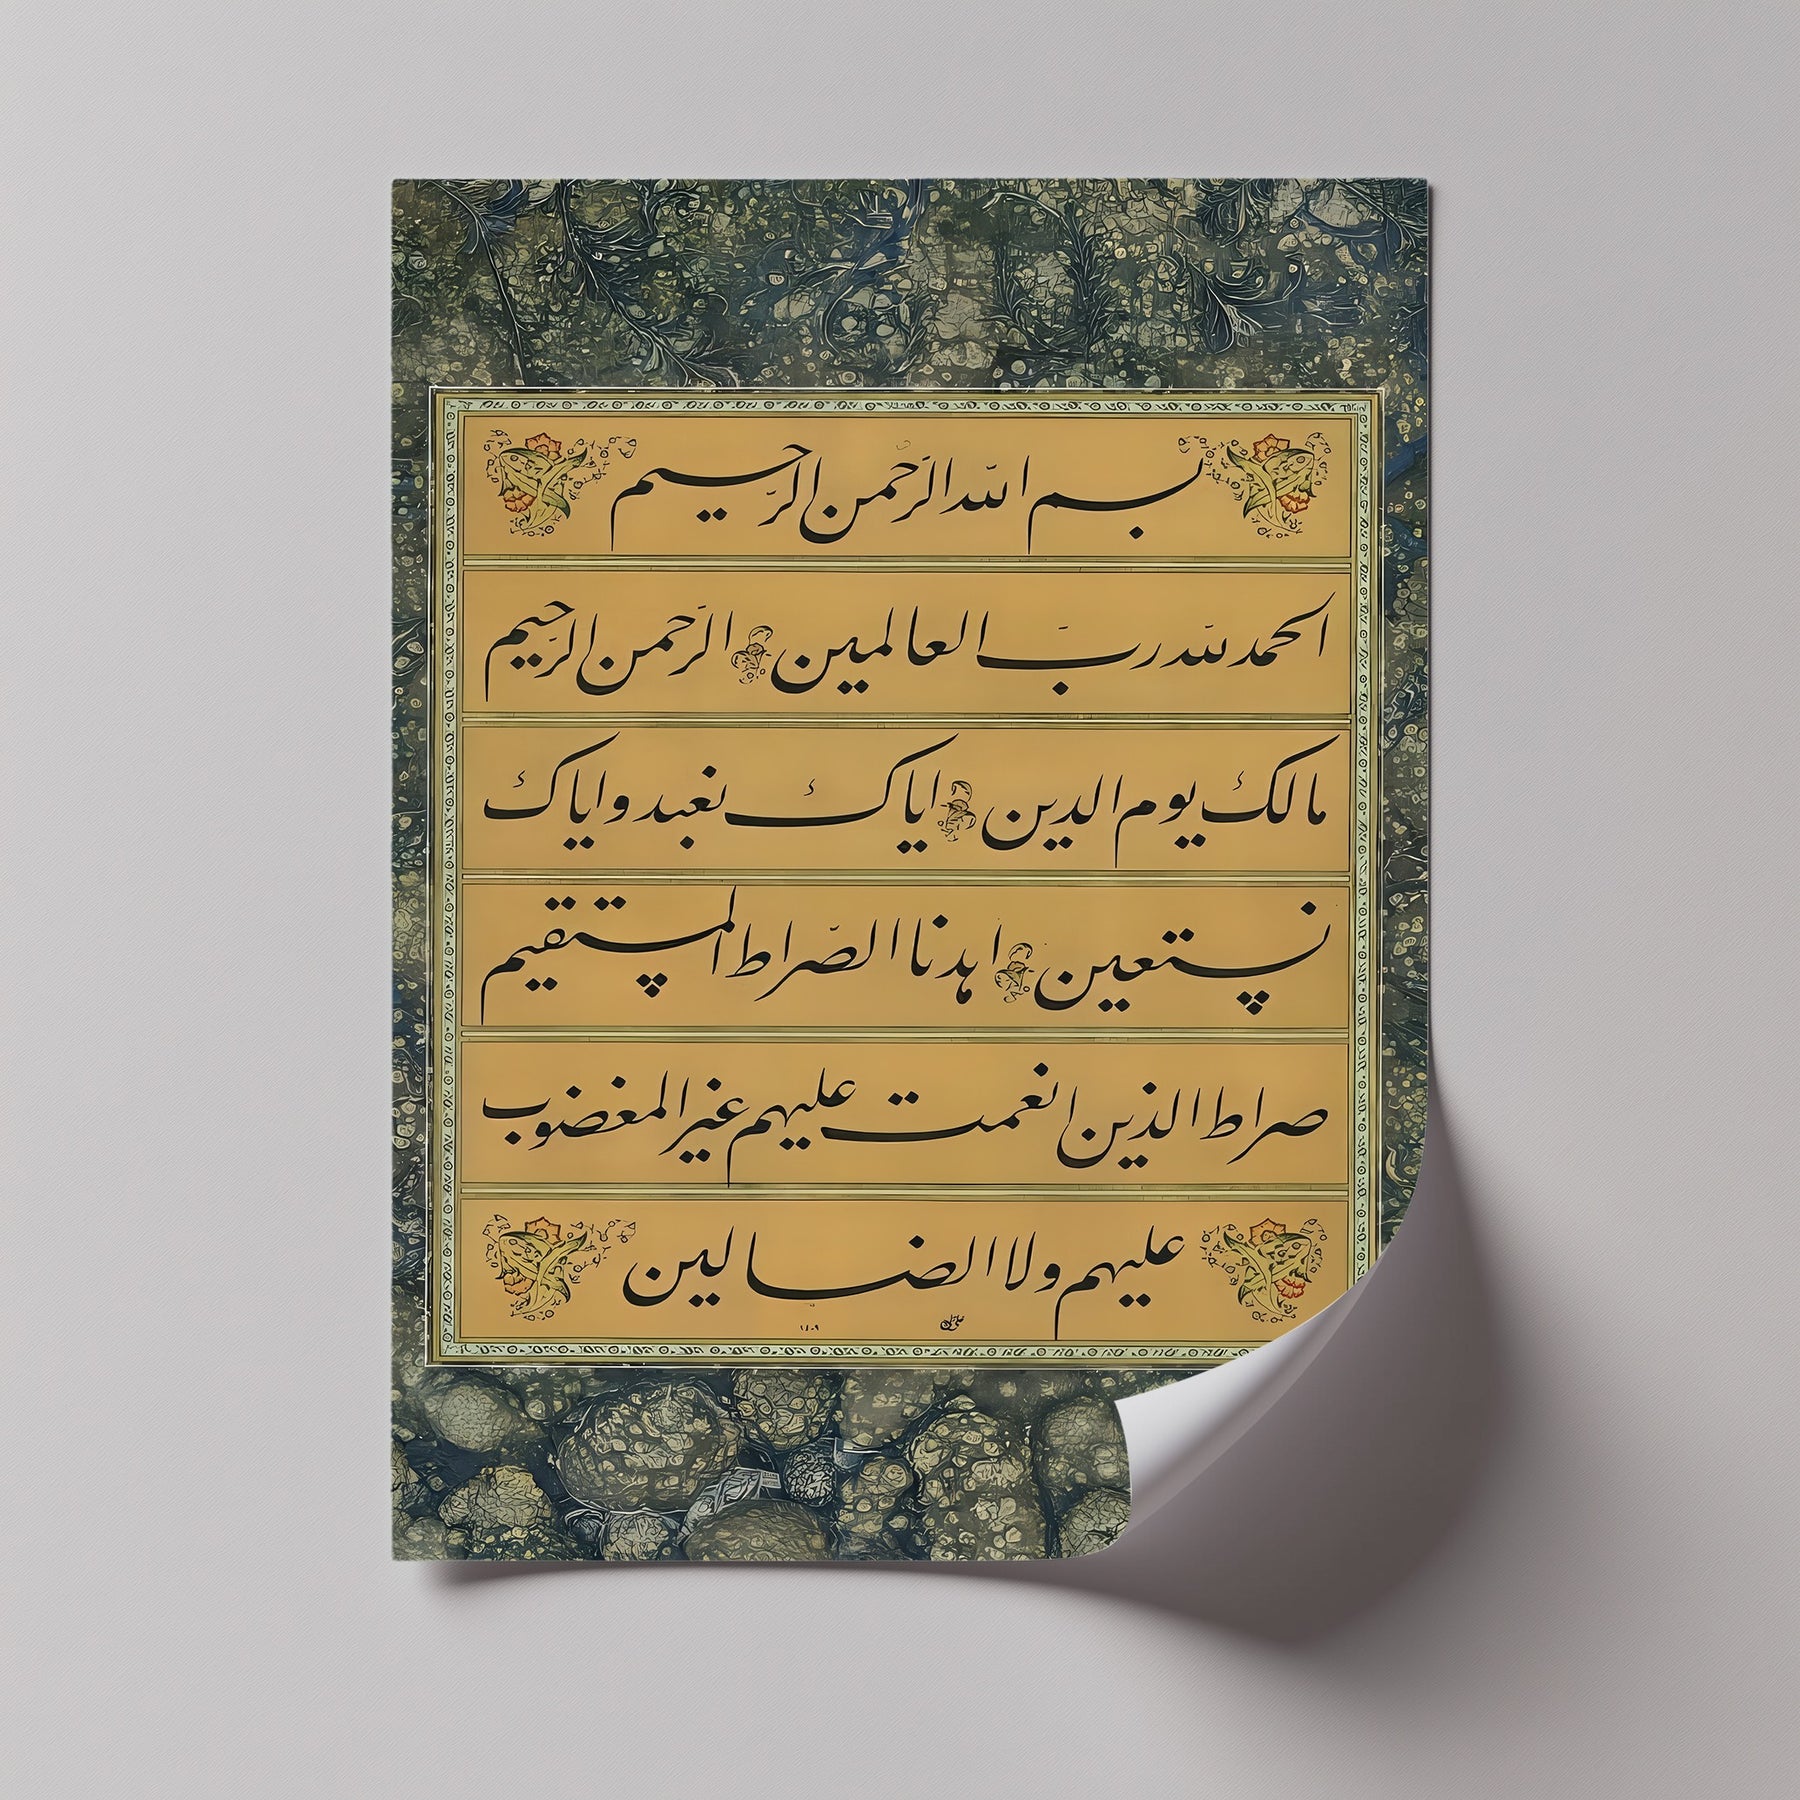 بسم الله الرَحمن الرَّحیم
الحمد لله ربَّ العالمین الرَحمن الرَّحیم
مالک یوم الدین ایاک نعبد و ایاک
نستعین اهدنا الصّراط المستقیم
صراط الذین انعمت علیهم غیر المغضوب
علیهم ولا الضالین